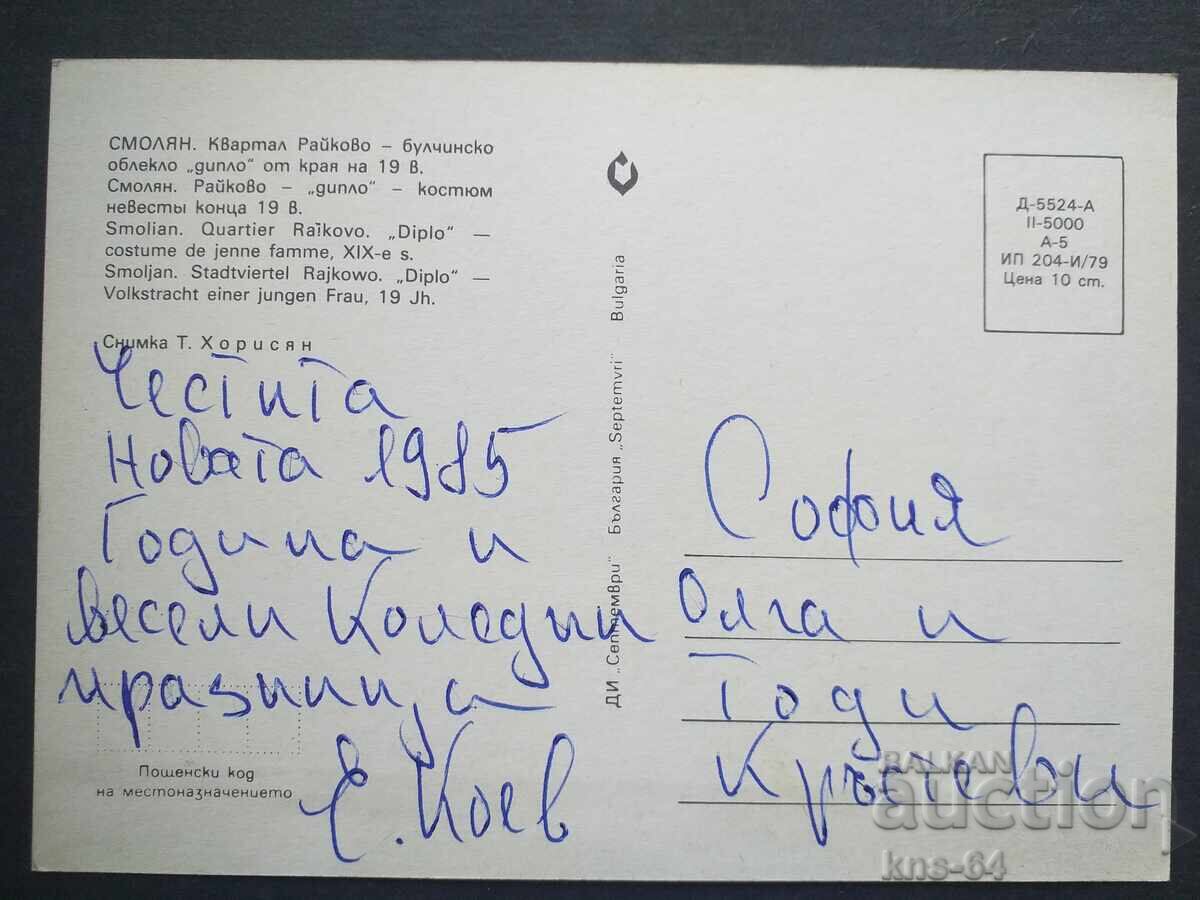 СМОЛЯН. Квартал Райково – булчинско
облекло „дипло" от края на 19 в.
Смолян. Райково – „дипло" – костюм
невесты конца 19 в.
Smolian. Quartier Raïkovo. „Diplo" —
costume de jenne famme, XIX-e s.
Smoljan. Stadtviertel Rajkowo. „Diplo" —
Volkstracht einer jungen Frau, 19 Jh.
Снимка Т. Хорисян
Честита
Новата 1985
Година и
весели Коледни
празници,
Е. Коев
Пощенски код
на местоназначението
ДИ „Септември" България „Septemvri" Bulgaria
Д-5524-А
II-5000
А-5
ИП 204-И/79
Цена 10 ст.
София
Олга и
Тоди
Кръстеви
BALKAN
auction
kns-64